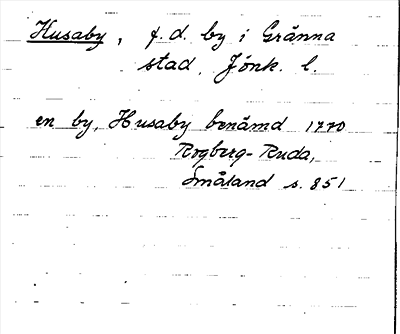 Husaby, f.d. by i Gränna
stad, Jönk. l.
en by, Husaby benämd 1770
Rogberg-Ruda,
Småland s. 851